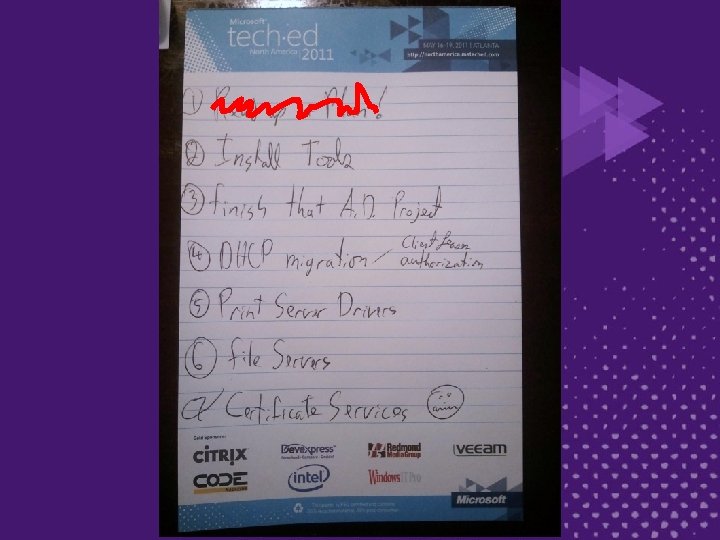 Microsoft®
tech·ed
North America 2011
MAY 16-19, 2011 | ATLANTA
http://northamerica.msteched.com
① Plan!
② Install Tools
③ finish that A.D. Project
④ DHCP migration
Client
authorization
⑤ Print Server Drivers
⑥ file Servers
Certificate Services
Gold sponsors:
CITRIX
DevExpress
Redmond
MediaGroup
veeam
CODE
MAGAZINE
intel
WindowsITPro
Microsoft